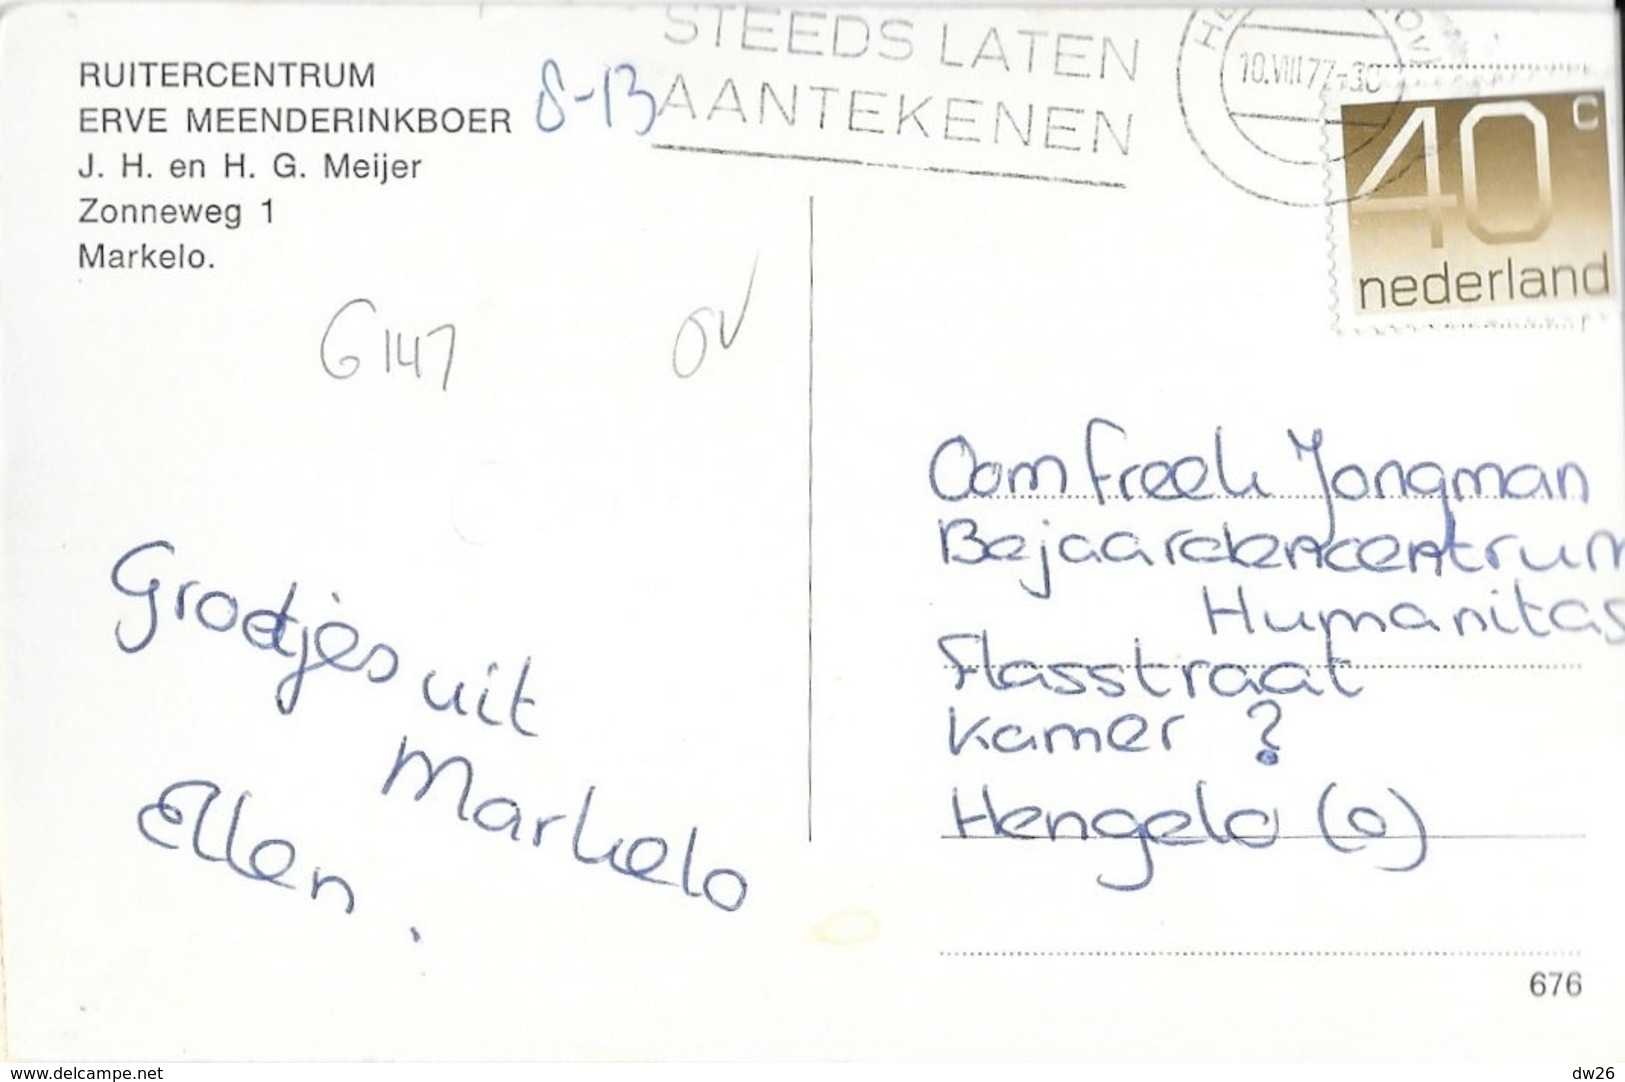 STEEDS LATEN
AANTEKENEN
10.VIII.77
40 c
nederland
RUITERCENTRUM
ERVE MEENDERINKBOER
J. H. en H. G. Meijer
Zonneweg 1
Markelo.
8-13
G147
OV
Groetjes uit
Markelo
Ellen.
Oom Freek Jongman
Bejaardencentrum
Humanitas
Flasstraat
Kamer ?
Hengelo (o)
676
www.delcampe.net
dw26